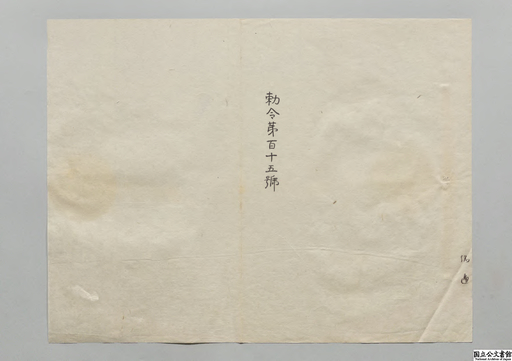 勅令第百十五號
国立公文書館
National Archives of Japan